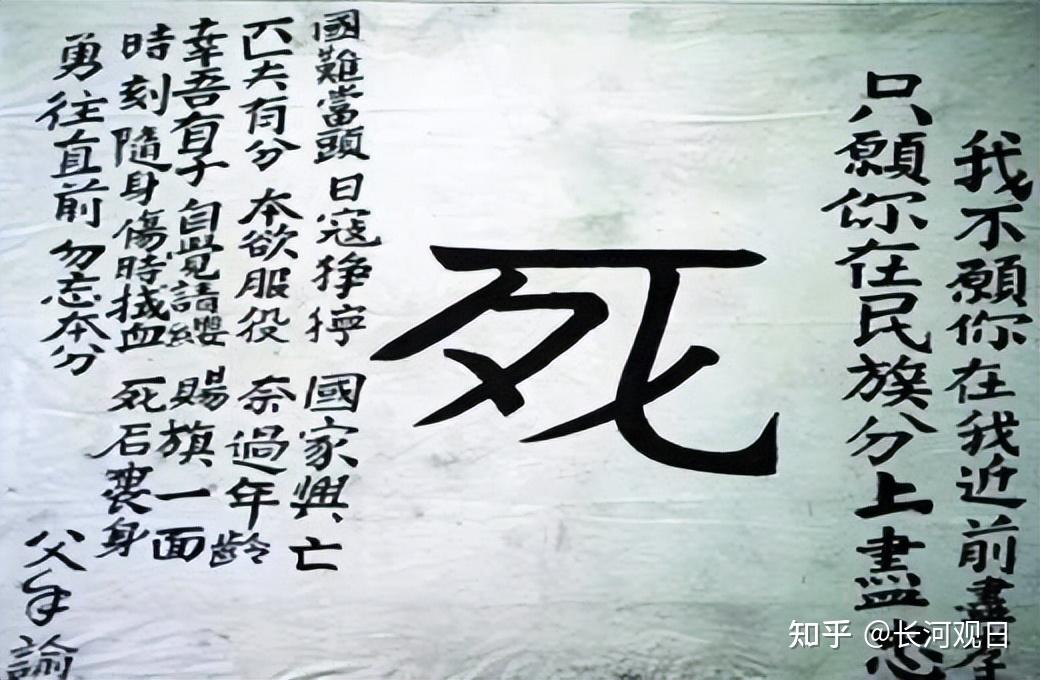 我不願你在我近前盡孝
只願你在民族分上盡忠
死
國難當頭 日寇猙獰 國家興亡
匹夫有分 本欲服役 奈過年齡
幸吾有子 自覺請纓 賜旗一面
時刻隨身 傷時拭血 死后裹身
勇往直前 勿忘本分
父手諭
知乎 @长河观日